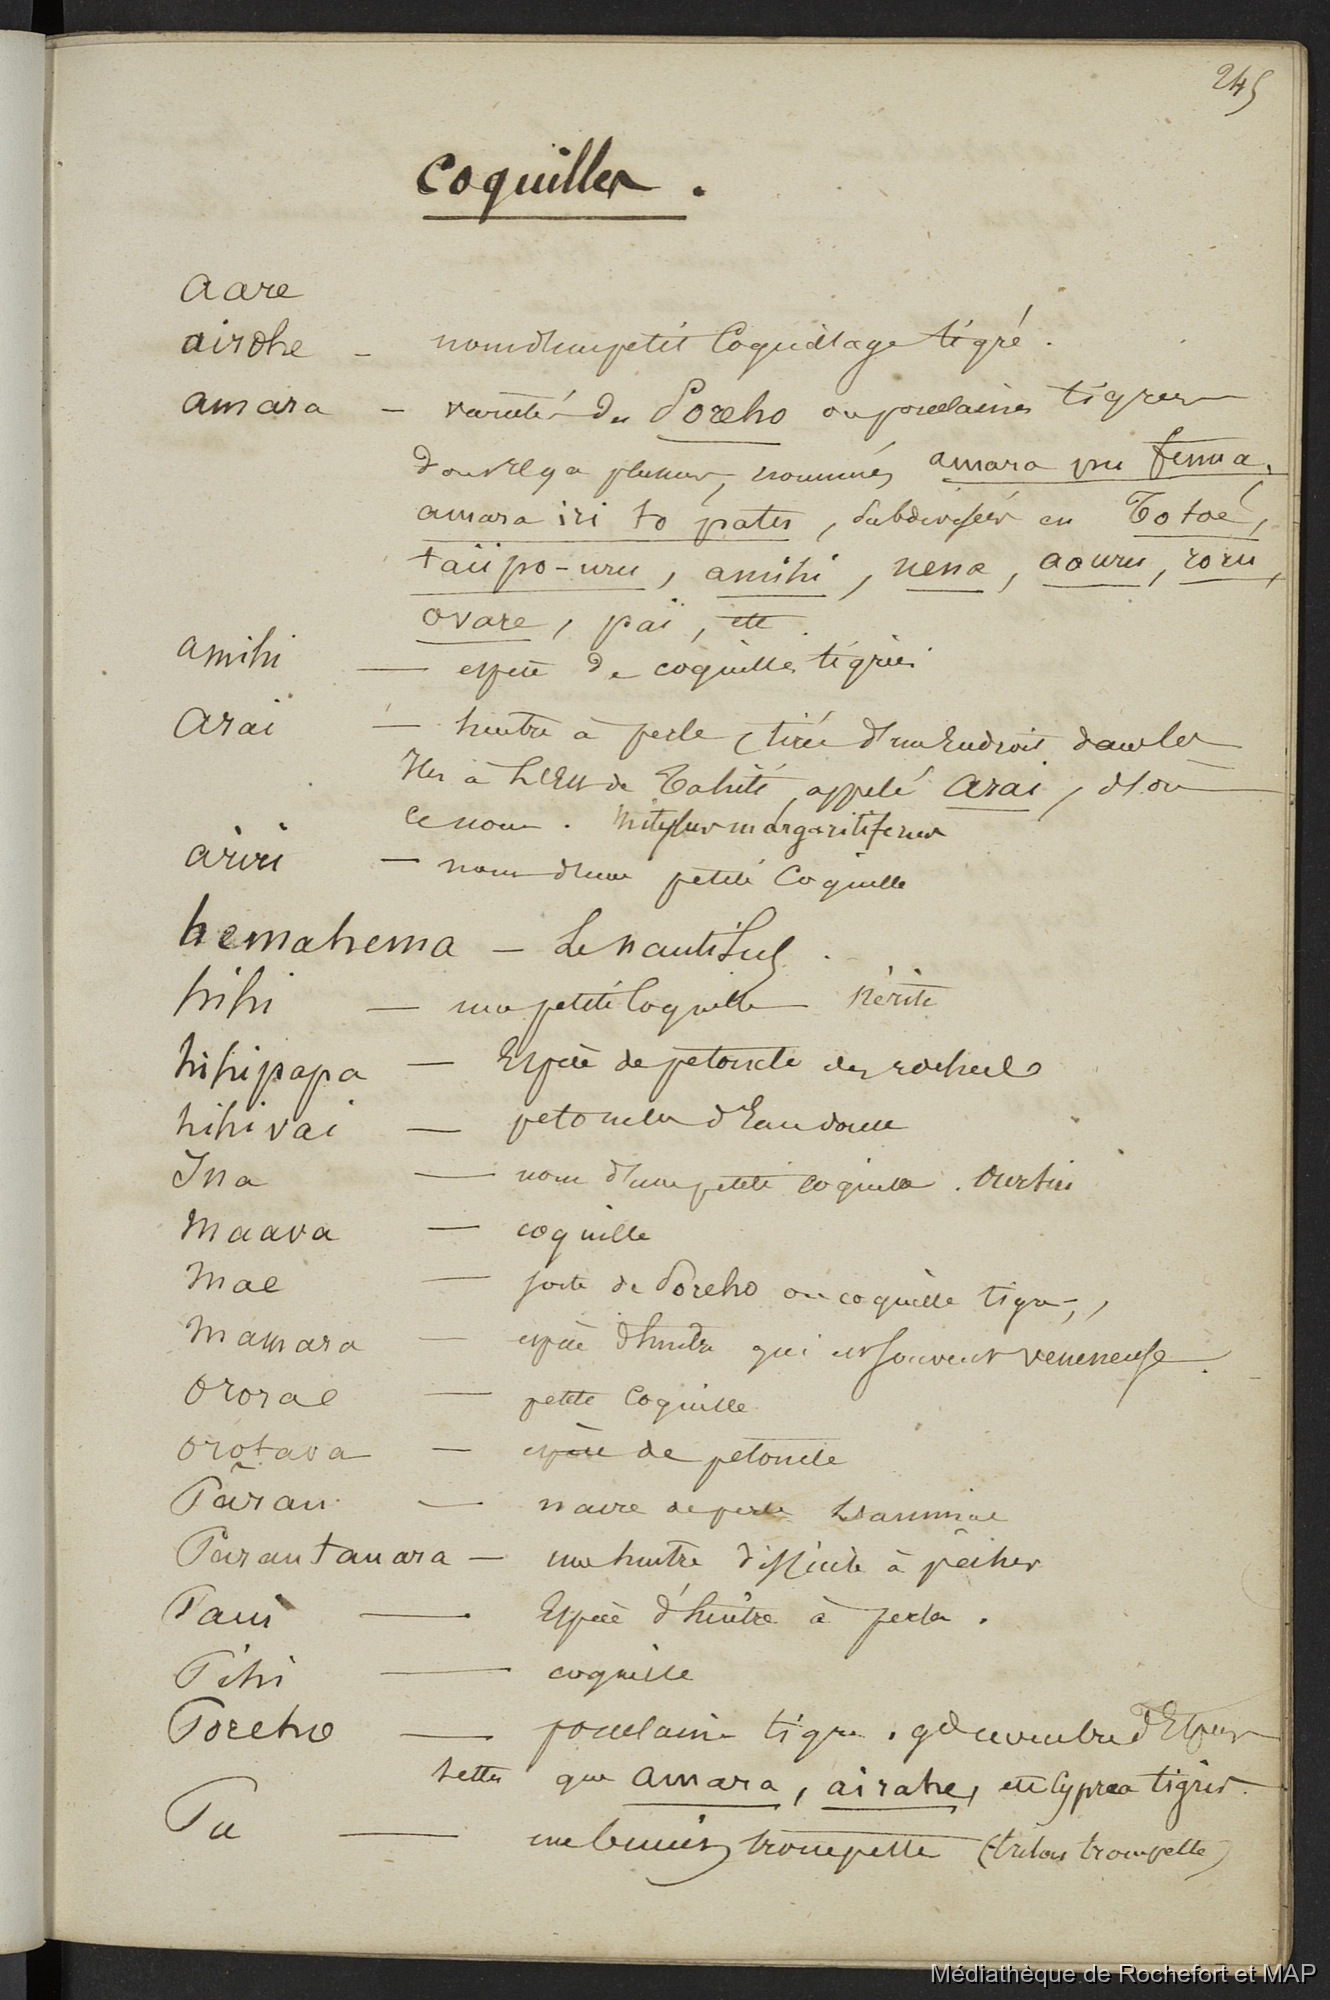 245
Coquilles.
aare
airohe - nom d'un petit Coquillage tigré.
amara - variété du Poreho ou porcelaines tigrées
dont il y a plusieurs, nommés amara pu fenua,
amara iri to patis, subdivisées en Totoé,
taiipo-uru, amihi, nena, aouru, roru,
ovare, pai, etc.
amihi — espèce de coquilles tigrées
arai — huitre à perle, tirée d'un Endroit dans les
Iles à L'Est de Tahiti, appelé arai, d'où
ce nom. Mitylus margaritiferus
ariri — nom d'une petite Coquille
hemahema — Le nautilus.
hihi — une petite Coquille nérite
hihipapa — Espèce de petoncle des rochers
hihivai — petoncles d'Eau douce
Ina — nom d'une petite coquille. Oursin
Maava — coquille
Mae — sorte de Poreho ou coquille tigre,,
Mamara — espèce d'huitre qui est souvent veneneuse.
Ororae — petite Coquille
orotava — espèce de petoncle
Pārau — nacre de perle L'animal
Parautauara — une huitre difficile à pêcher
Paui — Espèce d'huitre à perle.
Pihi — coquille
Poreho — porcelaine tigre. gd nombre d'Espèces
telles que amara, airahe, etc Cyprea tigris.
Pu — une buccin, trompette (triton trompette)
Médiathèque de Rochefort et MAP